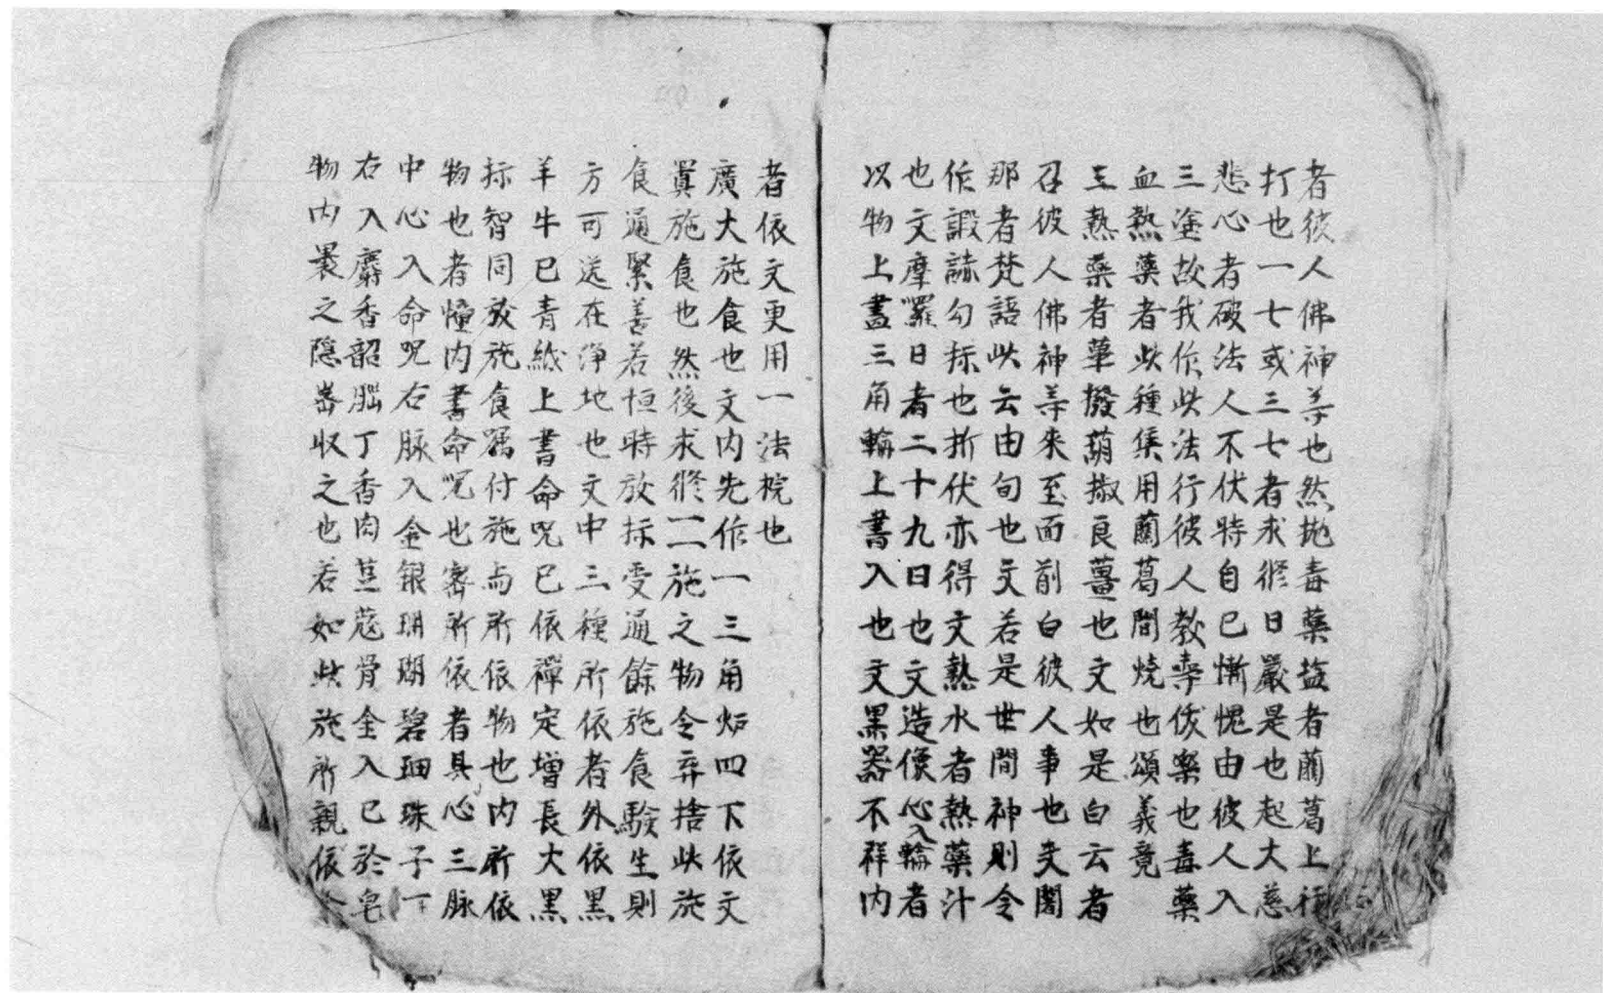 者彼人佛神等也然拋毒藥盐者蘭葛上行
打也一七或三七者求修日嚴是也起大慈
悲心者破法人不伏特自已慚愧由彼人入
三塗故我作此法行彼人教傷害也毒藥
血熱藥者此種集用蘭葛間燒也頌義竟
三熱藥者蓽撥葫椒良薑也文如是白云者
召彼人佛神等來至面前白彼人事也文闍
那者梵語此云由旬也文若是世間神則令
作誐誴勾㧾也折伏亦得文熱水者熱藥汁
也文摩羅日者二十九日也文造像心入輪者
以物上畫三角輪上書入也文黑器不祥内
者依文更用一法梡也
廣大施食也文内先作一三角炉四下依文
冥施食也然後求修一一施之物令弃捨此施
食通緊善若恒時放㧾受通餘施食驗生則
方可送在淨地也文中三種所依者外依黑
羊牛巳青紙上書命呪巳依禪定增長大黑
㧾智同放施食嘱付施与所依物也内所依
物也者幢内書命呪也密所依者具心三脉
中心入命呪右脉入金银珊瑚碧珊珠子丁
右入麝香韶腦丁香肉荳蔻骨全入巳於皂
物内褁之隠密収之也若如此施所親依